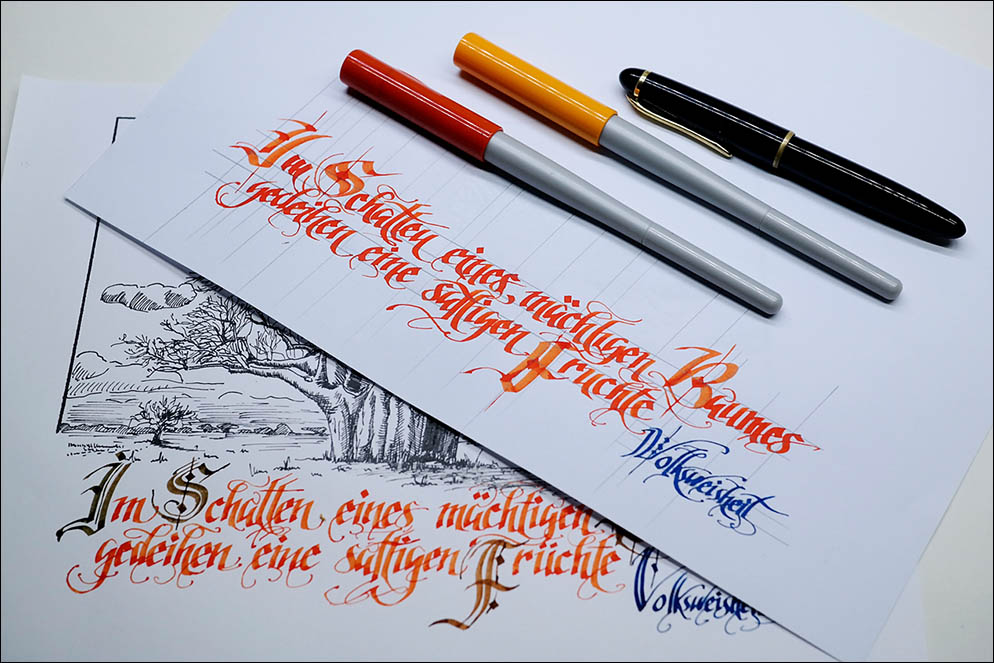 Im Schatten eines mächtigen Baumes
gedeihen eine saftigen Früchte
Volksweisheit
Im Schatten eines mächtigen
gedeihen eine saftigen Früchte
Volksweishe